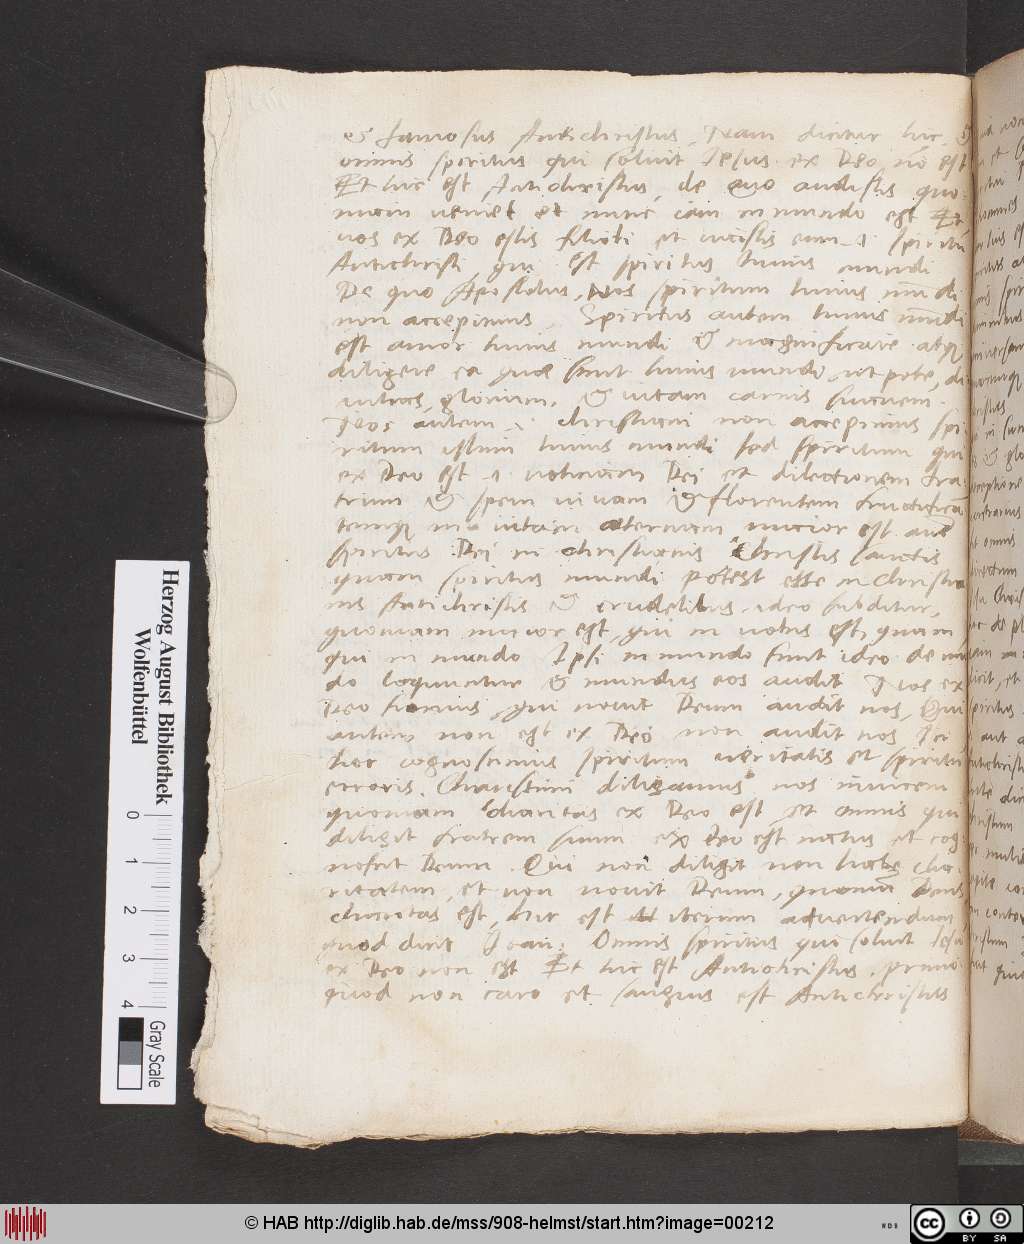 & famosus Antichristus. Nam dicitur hic. &
omnis spiritus qui soluit Jesus ex Deo nō est
Et hic est Antichristus, de quo audistis quo:
niam veniet et nunc iam in mundo est Et
vos ex Deo estis filioli et vicistis eum .i. spiritū
Antichristi, qui est spiritus huius mundi
De quo Apostolus, Nos spiritum huius mūdi
non accepimus. Spiritus autem huius mūdi
est amor huius mundi & magnificare atq
diligere ea quae sunt huius mundi, ut pote, di
uitias, gloriam, & uitam carnis suauem.
Nos autem .i. christiani non accepimus spi
ritum istum huius mundi sed spiritum qui
ex Deo est .i. noticiam Dei et dilectionem fra
trum & spem uiuam & florentem fructificā
temq in uitam aeternam maior est autē
spiritus Dei in christianis Christi sanctis
quam spiritus mundi potest esse in Christia
nis Antichristis & crudelibus, ideo subditur,
quoniam maior est, qui in vobis est, quam
qui in mundo Ipsi in mundo sunt ideo de mū
do loquuntur & mundus eos audit Nos ex
Deo sumus, qui novit Deum audit nos, Qui
autem non est ex Deo non audit nos In
hoc cognoscimus spiritum ueritatis et spiritū
erroris. Charissimi diligamus nos inuicem
quoniam charitas ex Deo est, et omnis qui
diligit fratrem suum ex Deo est natus et cog:
noscit Deum. Qui non diligit non habet cha:
ritatem, et non novit Deum, quoniā Deus
charitas est, hic est iterum aduertendum
quod dicit Joan: Omnis spiritus qui soluit Iesū
ex Deo non est Et hic est Antichristus, primo
quod non caro et sanguis est Antichristus
Herzog August Bibliothek
Wolfenbüttel
0
1
2
3
4
Gray Scale
© HAB http://diglib.hab.de/mss/908-helmst/start.htm?image=00212
WDB
cc
BY SA